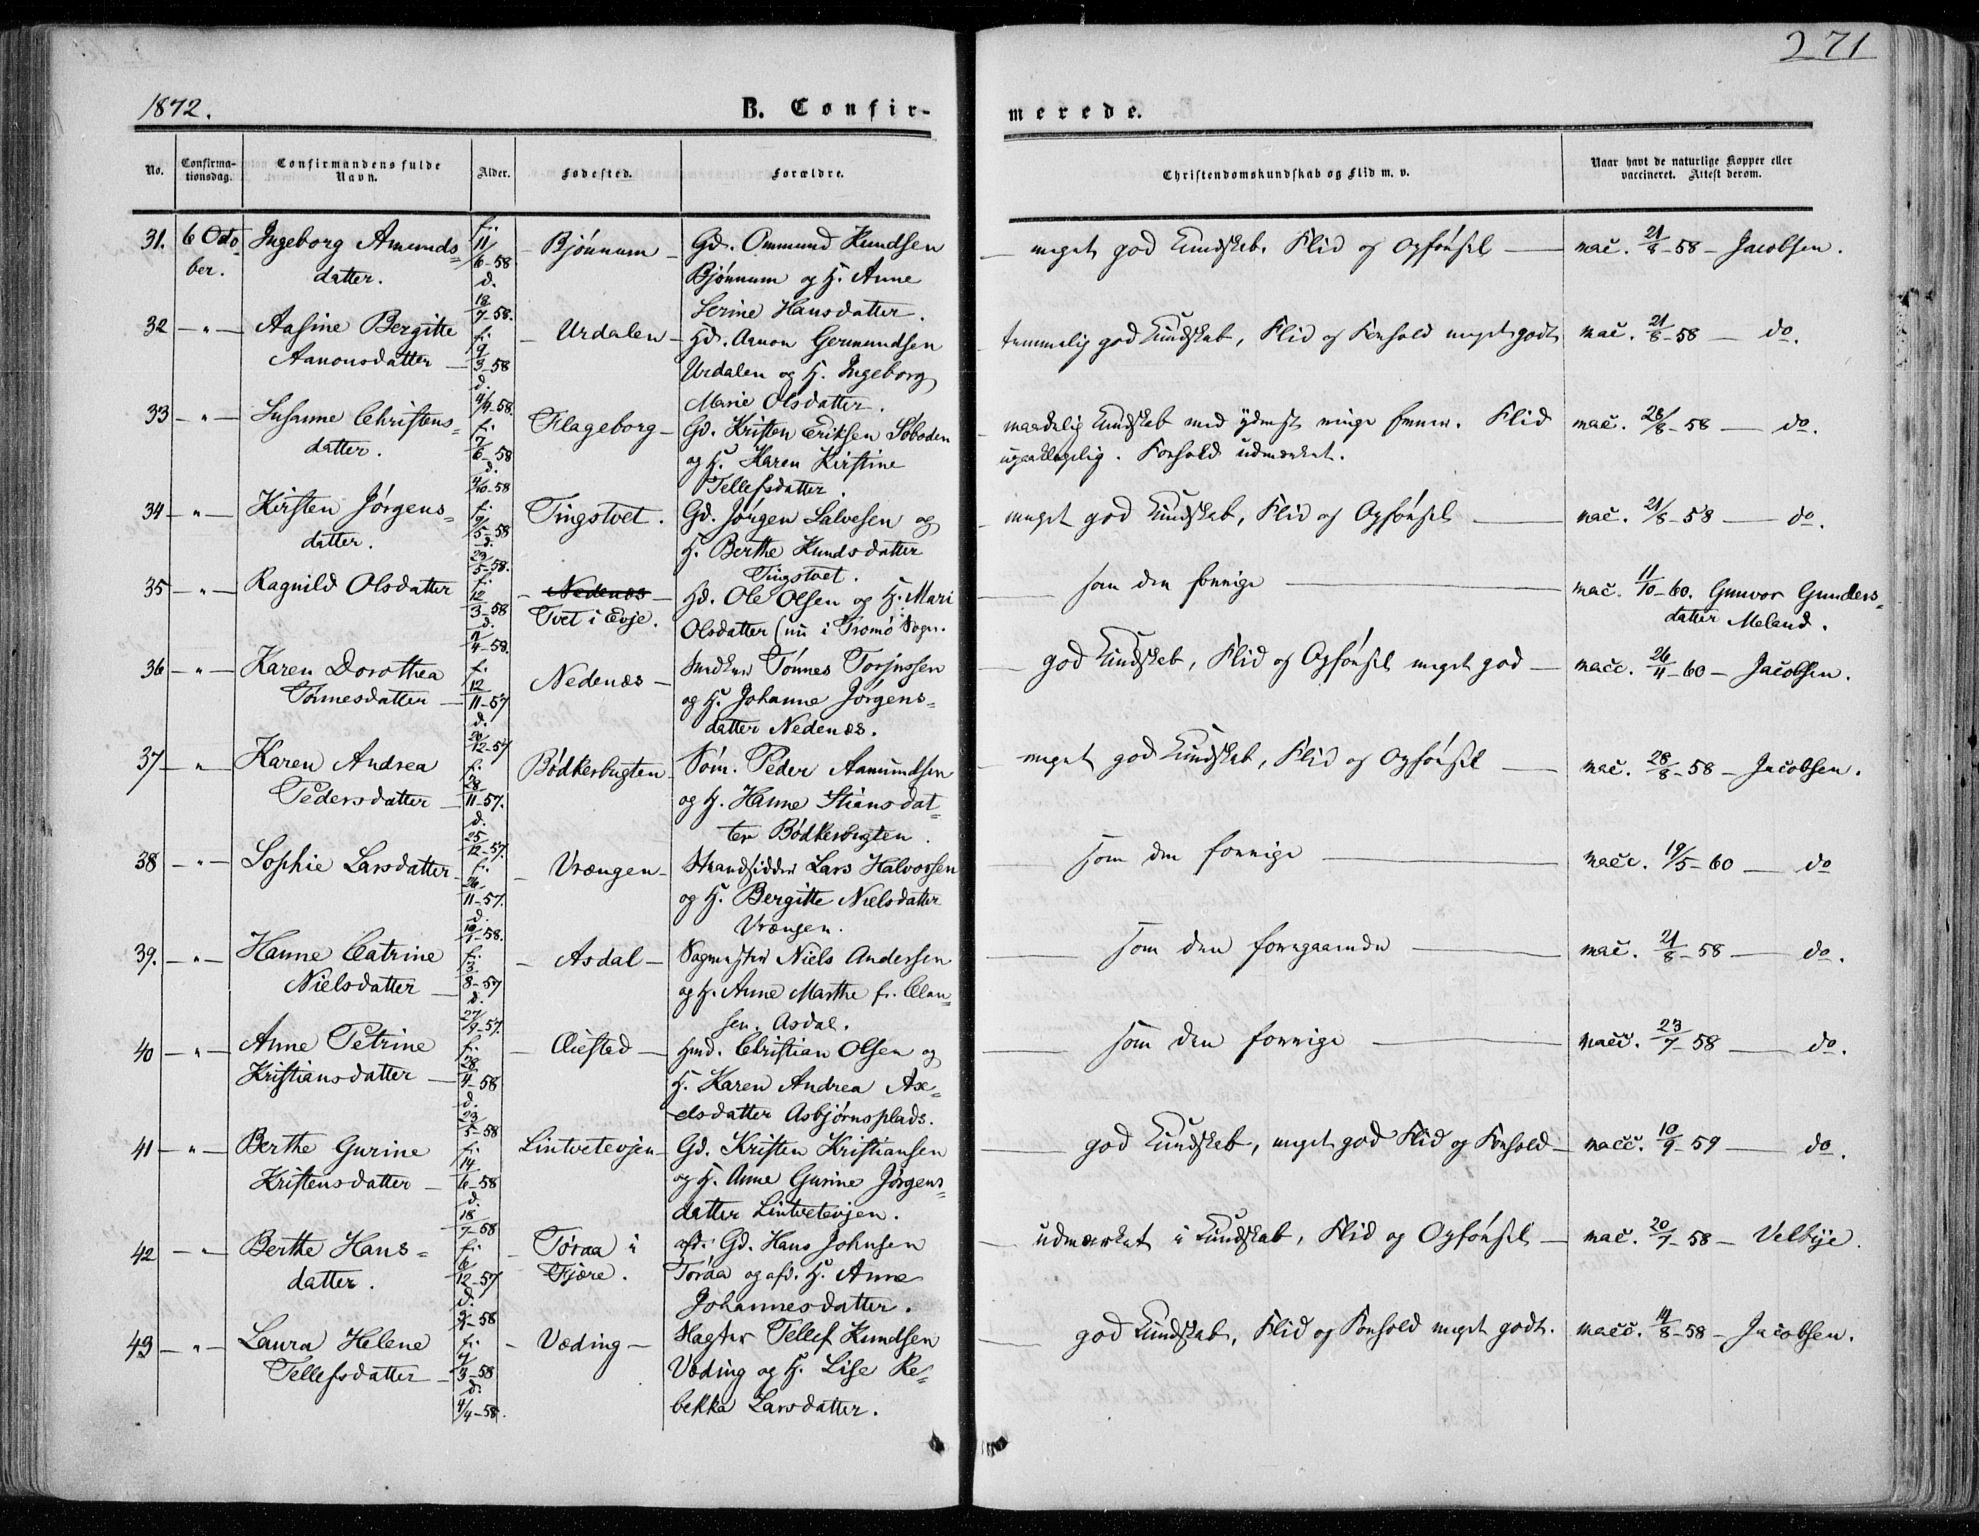 1872.
B. Confir-
merede.
271
No.
Confirma-
tionsdag.
Confirmandens fulde
Navn.
Alder.
Fødested.
Forældre.
Christendomskundskab og Flid m. v.
Naar havt de naturlige Kopper eller
vaccineret. Attest derom.
31. 6 Octo-
ber.
Ingeborg Amunds=
datter.
f. 11/6-58
d. 18/7-58.
Bjönnum
Gd. Ommund Knudsen
Bjönnum og H. Anne
Serine Hansdatter.
meget god Kundskab, Flid og Opførsel
vac. 21/8-58 - Jacobsen.
32 - " -
Aasine Bergitte
Aanonsdatter
f. 9/3-58
d. 4/4-58.
Urdalen
Hd. Aanon Germundsen
Urdalen og H. Ingeborg
Marie Olsdatter.
temmelig god Kundskab, Flid og Forhold meget godt
vac. 21/8-58 - do.
33 - " -
Susanne Christens=
datter.
f. 7/6-58
d. 4/10-58
Flageborg
Gd. Kristen Eriksen Søboden
og H. Karen Kirstine
Tellefsdatter.
maadelig Kundskab med ydmyst ringe Evner. Flid
upaaklagelig. Forhold udmærket.
vac. 28/8-58 - do.
34 - " -
Kirsten Jörgens=
datter.
f. 19/5-58
d. 29/5-58.
Tingstvet.
Gd. Jörgen Salvesen og
H. Berthe Knudsdatter
Tingstvet.
meget god Kundskab, Flid og Opførsel
vac. 21/8-58 - do.
35 - " -
Ragnild Olsdatter
f. 12/3-58
d. 2/4-58.
Nedenæs
Tvet i Evje.
Hd. Ole Olsen og H. Mari
Olsdatter (nu i Tromö Sogn.
som den forrige
vac. 11/10-60. Gunvor Gunders=
datter Meland.
36 - " -
Karen Dorothea
Tönnesdatter
f. 12/11-57
d. 20/12-57
Nedenæs
Snedker Tönnes Torjussen
og H. Johanne Jörgens=
datter Nedenæs.
god Kundskab, Flid og Opførsel meget god
vacc. 26/11-60 - Jacobsen.
37 - " -
Karen Andrea
Pedersdatter
f. 28/11-57.
d. 25/12-57.
Bödkerbugten
Söm. Peder Aamundsen
og H. Hanne Stiansdat
ter Bödkerbugten.
meget god Kundskab, Flid og Opførsel
vac. 28/8-58 - Jacobsen.
38 - " -
Sophie Larsdatter
f. 26/11-57.
d. 10/1-58.
Vrængen
Strandsidder Lars Halvorsen
og H. Bergitte Nielsdatter
Vrængen.
som den forrige
vacc. 19/5-60 - do
39. - " -
Hanne Catrine
Nielsdatter
f. 3/8-57
d. 27/9-57.
Asdal
Sagmester Niels Andersen
og H. Anne Marthe f. Clau=
sen. Asdal.
som den foregaaende
vac. 21/8-58 - do.
40 - " -
Anne Petrine
Kristiansdatter
f. 28/4-58
d. 23/5-58
Øiestad
Hmd. Christian Olsen og
H. Karen Andrea Ax=
elsdatter Asbjørnsplads.
som den forrige
vacc. 23/7-58 - do.
41 - " -
Berthe Gurine
Kristensdatter
f. 14/6-58
d. 18/7-58
Lintvetevjen
Gd. Kristen Kristiansen
og H. Anne Gurine Jörgens=
datter Lintvetevjen.
god Kundskab, meget god Flid og Forhold
vacc. 10/9-59 - do.
42 - " -
Berthe Hans=
datter.
f. 6/12-57
d. 2/4-58
Töraa i
Fjære.
afd. Gd. Hans Johnsen
Töraa og afd. H. Anne
Johannesdatter.
udmærket i Kundskab, Flid og Opførsel
vac. 20/7-58 - Velbye.
43 - " -
Laura Helene
Tellefsdatter
f. 4/3-58
d. 4/4-58.
Væding
Slagter Tellef Knudsen
Væding og H. Lise Re=
bekka Larsdatter.
god Kundskab, Flid og Forhold meget godt.
vacc. 14/8-58 - Jacobsen.